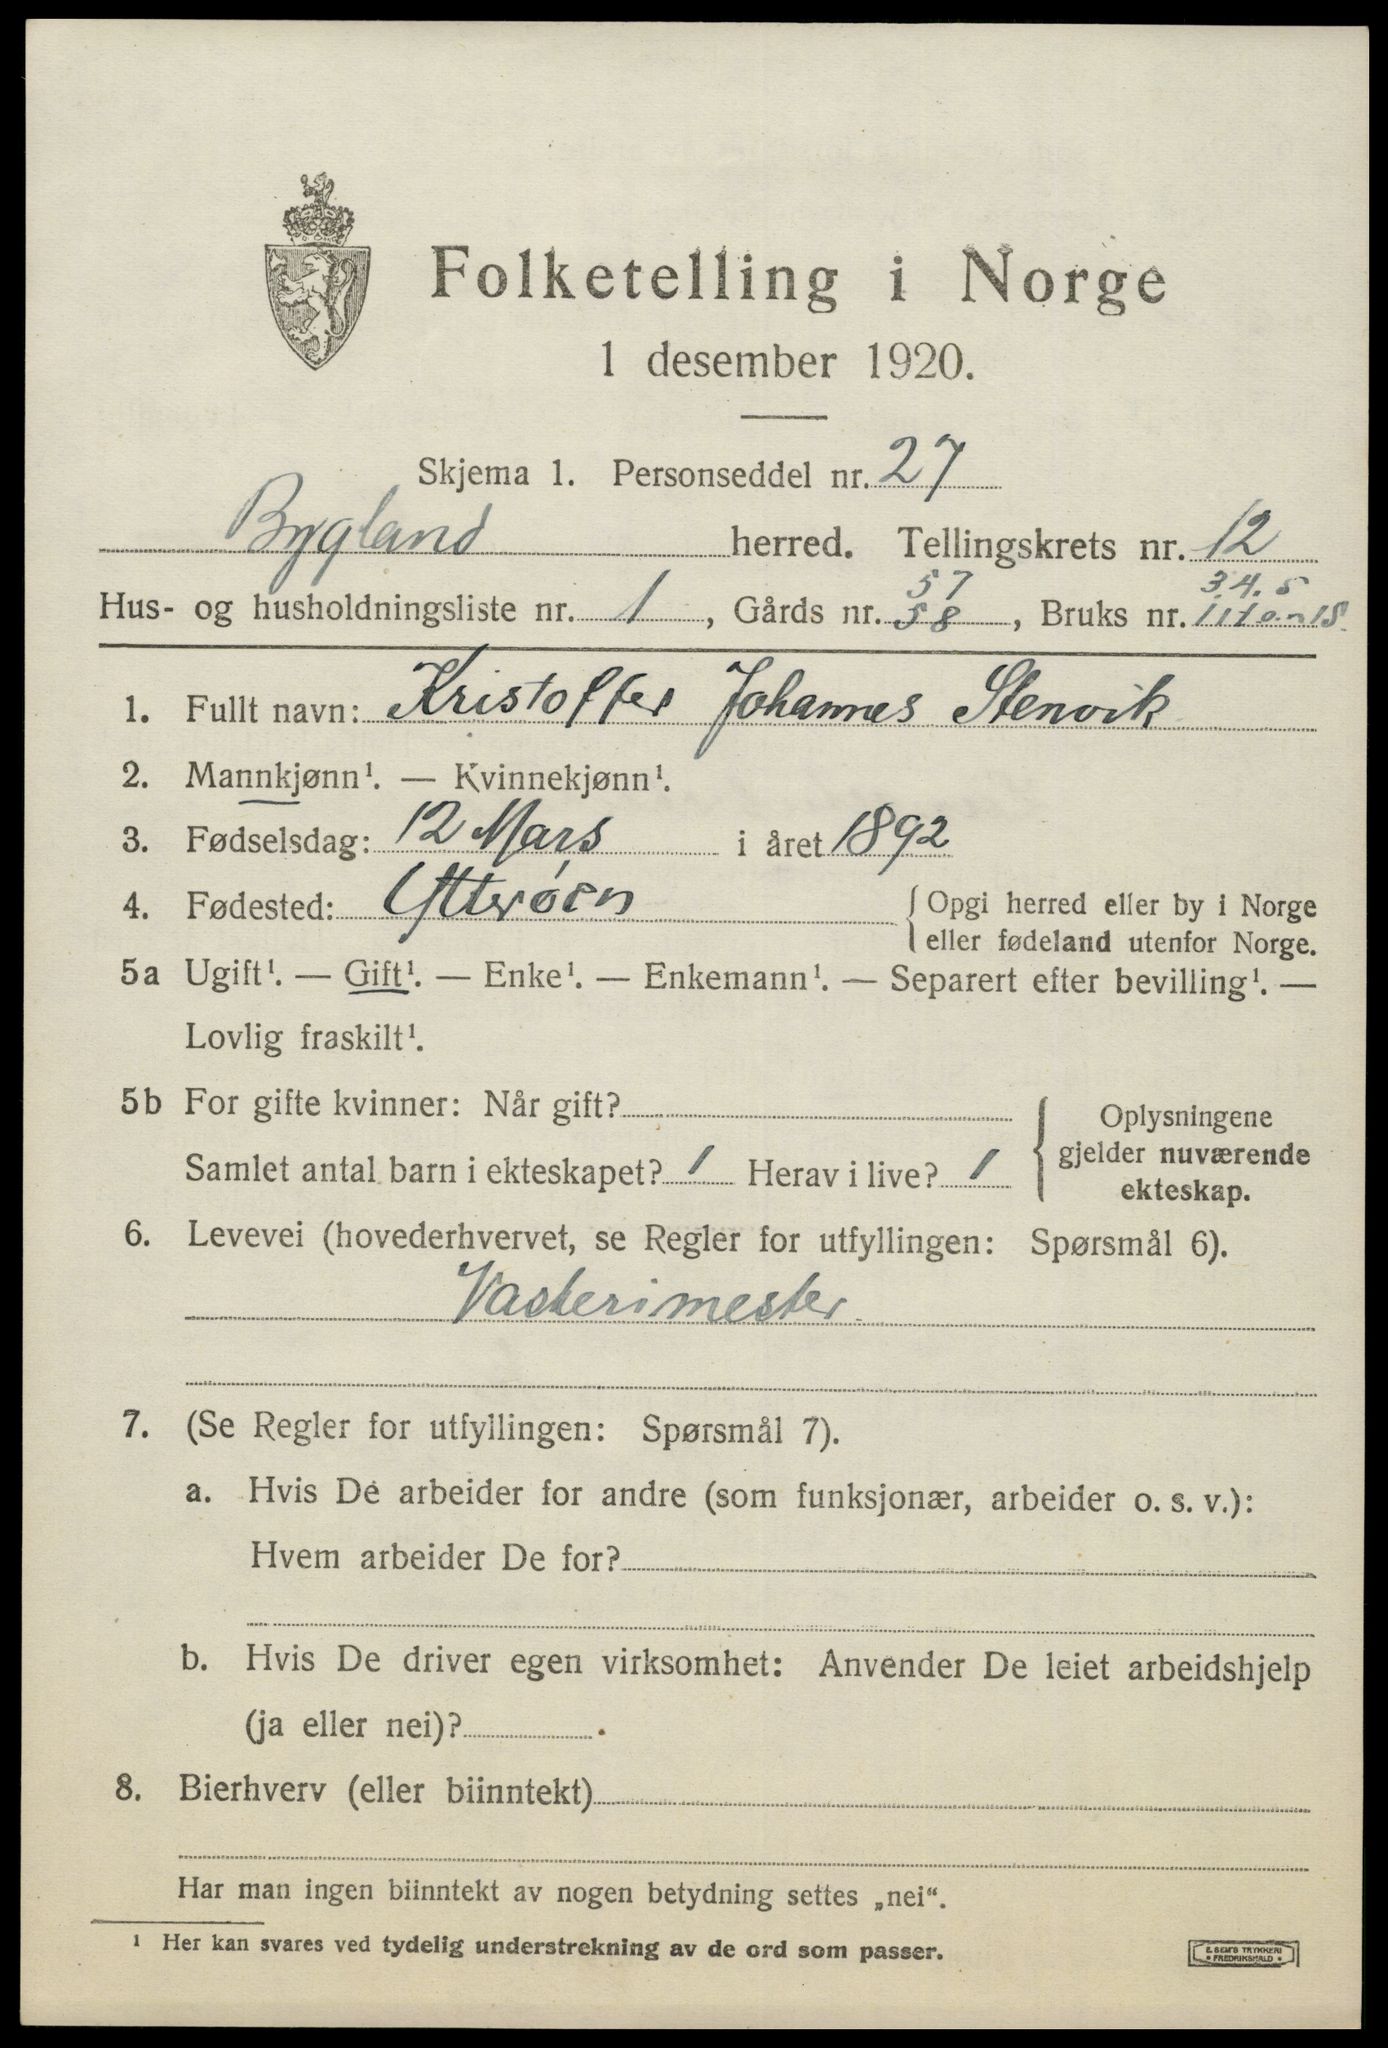 Folketelling i Norge
1 desember 1920.
Skjema 1. Personseddel nr. 27
Bygland herred. Tellingskrets nr. 12
57 3.4.5
Hus- og husholdningsliste nr. 1, Gårds nr. 58, Bruks nr.
1. Fullt navn: Kristoffer Johannes Stenvik
2. Mannkjønn¹. — Kvinnekjønn¹.
3. Fødselsdag: 12 Mars i året 1892
4. Fødested: Ytterøen { Opgi herred eller by i Norge
eller fødeland utenfor Norge.
5a Ugift¹. — Gift¹. — Enke¹. — Enkemann¹. — Separert efter bevilling¹. —
Lovlig fraskilt¹.
5b For gifte kvinner: Når gift? { Oplysningene
gjelder nuværende
Samlet antal barn i ekteskapet? 1 Herav i live? 1
ekteskap.
6. Levevei (hovederhvervet, se Regler for utfyllingen: Spørsmål 6).
Vakterimester
7. (Se Regler for utfyllingen: Spørsmål 7).
a. Hvis De arbeider for andre (som funksjonær, arbeider o. s. v.):
Hvem arbeider De for?
b. Hvis De driver egen virksomhet: Anvender De leiet arbeidshjelp
(ja eller nei)? .
8. Bierhverv (eller biinntekt)
Har man ingen biinntekt av nogen betydning settes „nei“.
¹ Her kan svares ved tydelig understrekning av de ord som passer.
E. SEM'S TRYKKERI
• FREDRIKSHALD •